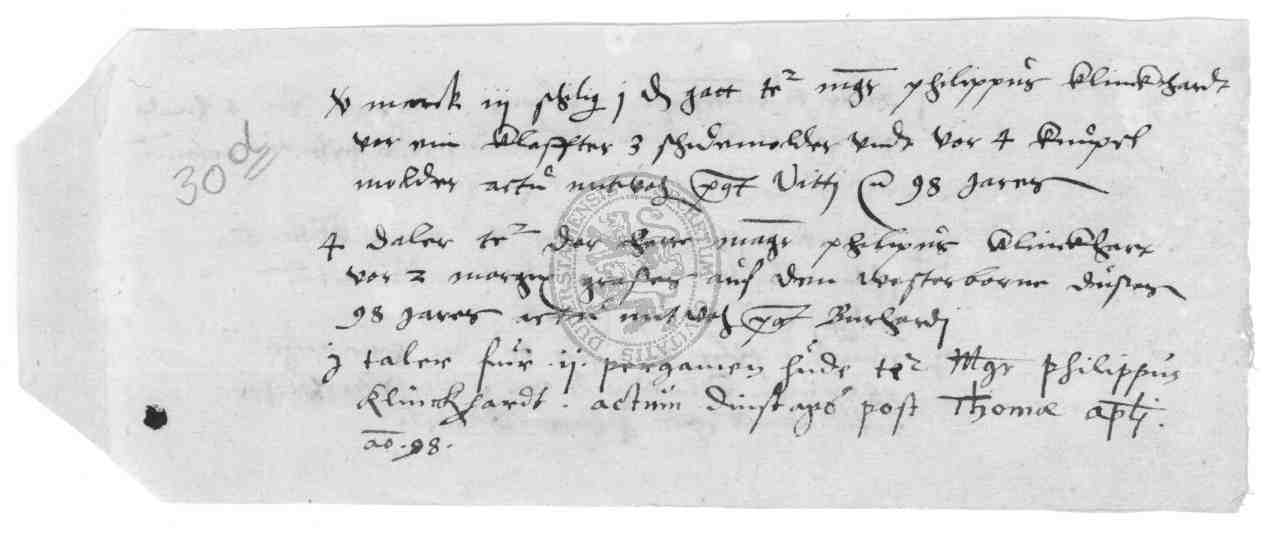 v marck iij schilg j d gatt te mgr philippus klinckhardt
vor ein klaffter 3 schidemolder vndt vor 4 knupel
molder actu mitwoch post Vitti 98 Jares
4 daler te der herre magr philipus klinckhart
vor 2 morgen grases auf dem westerborne duses
98 Jares actu mitwoch post Burhardj
j taler fur .ij. pergamen hude ter Mgr Philippus
Klinckhardt . actum dinstags post Thomæ aplj .
ao . 98 .
30 d